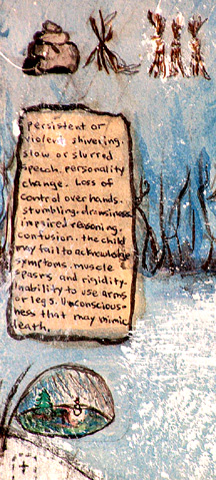 persistent or
violent shivering.
slow or slurred
speech, personality
change. Loss of
control over hands.
stumbling. drowsiness
impaired reasoning,
confusion. the child
may fail to acknowledge
symptoms. muscle
spasms and rigidity.
Inability to use arms
or legs. Unconscious-
ness that may mimic
death.